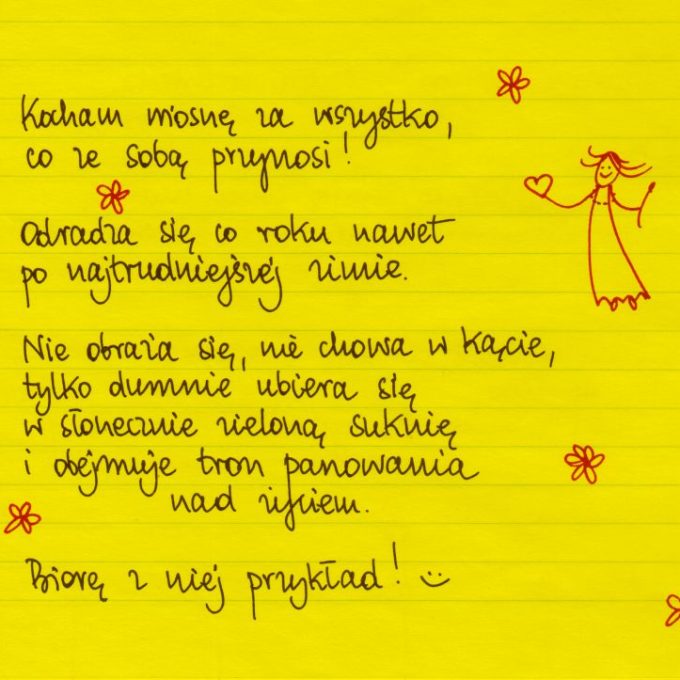 Kocham wiosnę za wszystko,
co ze sobą przynosi!
Odradza się co roku nawet
po najtrudniejszej zimie.
Nie obraża się, nie chowa w kącie,
tylko dumnie ubiera się
w słonecznie zieloną suknię
i obejmuje tron panowania
nad życiem.
Biorę z niej przykład! :)